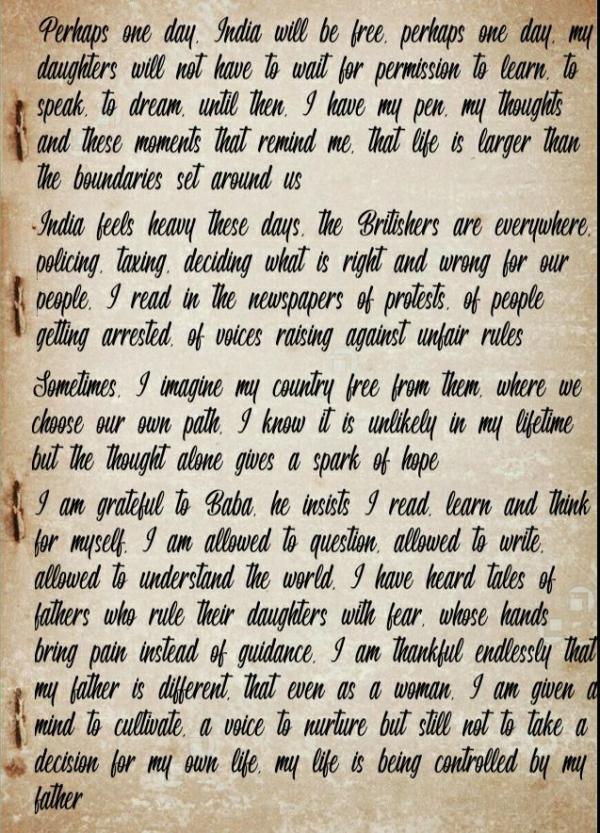 Perhaps one day, India will be free, perhaps one day, my
daughters will not have to wait for permission to learn, to
speak, to dream, until then, I have my pen, my thoughts
and these moments that remind me, that life is larger than
the boundaries set around us
India feels heavy these days, the Britishers are everywhere,
policing, taxing, deciding what is right and wrong for our
people, I read in the newspapers of protests, of people
getting arrested, of voices raising against unfair rules
Sometimes, I imagine my country free from them, where we
choose our own path, I know it is unlikely in my lifetime
but the thought alone gives a spark of hope
I am grateful to Baba, he insists I read, learn and think
for myself, I am allowed to question, allowed to write,
allowed to understand the world, I have heard tales of
fathers who rule their daughters with fear, whose hands
bring pain instead of guidance, I am thankful endlessly that
my father is different, that even as a woman, I am given a
mind to cultivate, a voice to nurture but still not to take a
decision for my own life, my life is being controlled by my
father